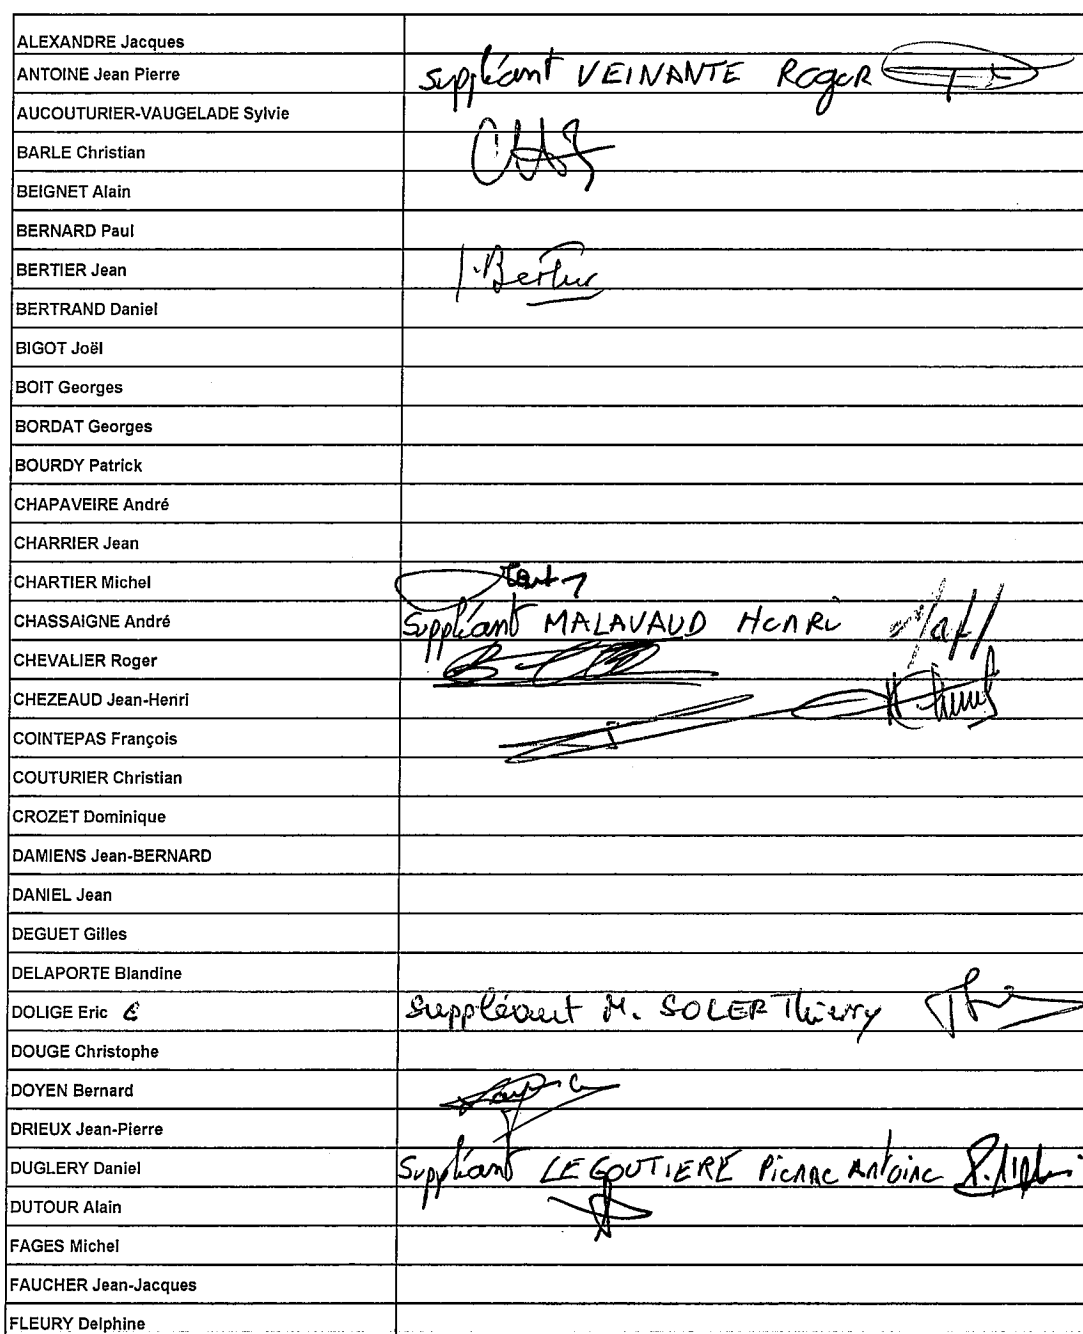 ALEXANDRE Jacques
ANTOINE Jean Pierre suppléant VEINANTE Roger
AUCOUTURIER-VAUGELADE Sylvie
BARLE Christian
BEIGNET Alain
BERNARD Paul
BERTIER Jean J. Bertier
BERTRAND Daniel
BIGOT Joël
BOIT Georges
BORDAT Georges
BOURDY Patrick
CHAPAVEIRE André
CHARRIER Jean
CHARTIER Michel
CHASSAIGNE André Suppléant MALAVAUD HENRI
CHEVALIER Roger
CHEZEAUD Jean-Henri
COINTEPAS François
COUTURIER Christian
CROZET Dominique
DAMIENS Jean-BERNARD
DANIEL Jean
DEGUET Gilles
DELAPORTE Blandine
DOLIGE Eric Suppléant M. SOLER Thierry
DOUGE Christophe
DOYEN Bernard
DRIEUX Jean-Pierre
DUGLERY Daniel Suppléant LEGOUTIERE Pierre Antoine
DUTOUR Alain
FAGES Michel
FAUCHER Jean-Jacques
FLEURY Delphine